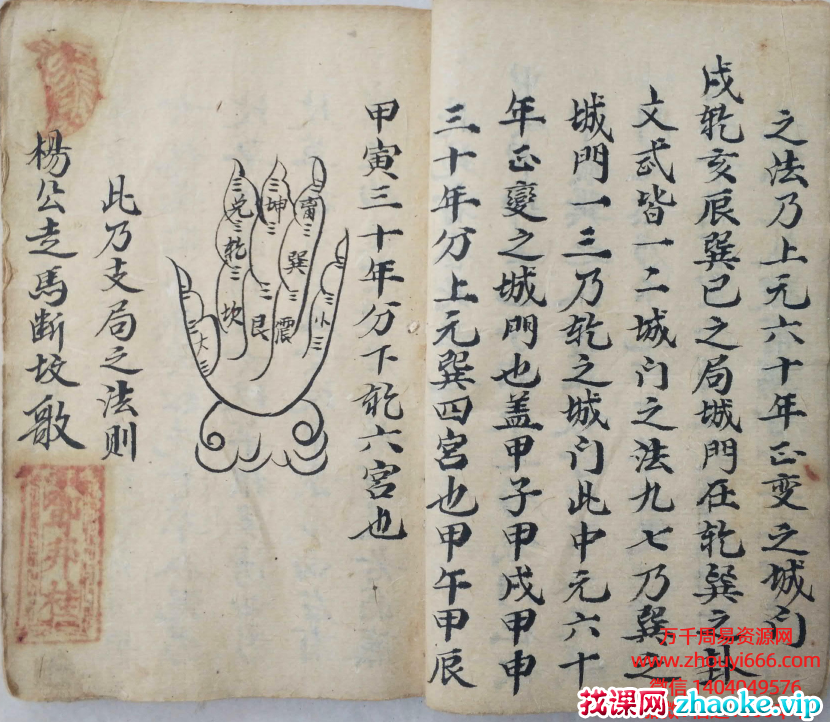 之法乃上元六十年正变之城门
戌乾亥辰巽巳之局城門在乾巽之卦
文武皆一二城门之法九七乃巽之
城門一三乃乾之城门此中元六十
年正變之城門也盖甲子甲戌甲申
三十年分上元巽四宫也甲午甲辰
甲寅三十年分下乾六宫也
离
坤
兑
巽
乾
小
震
艮
坎
大
此乃支局之法則
楊公走馬断坟歌
万千周易资源网
www.zhouyi666.com
微信 1404049576
找课网zhaoke.vip